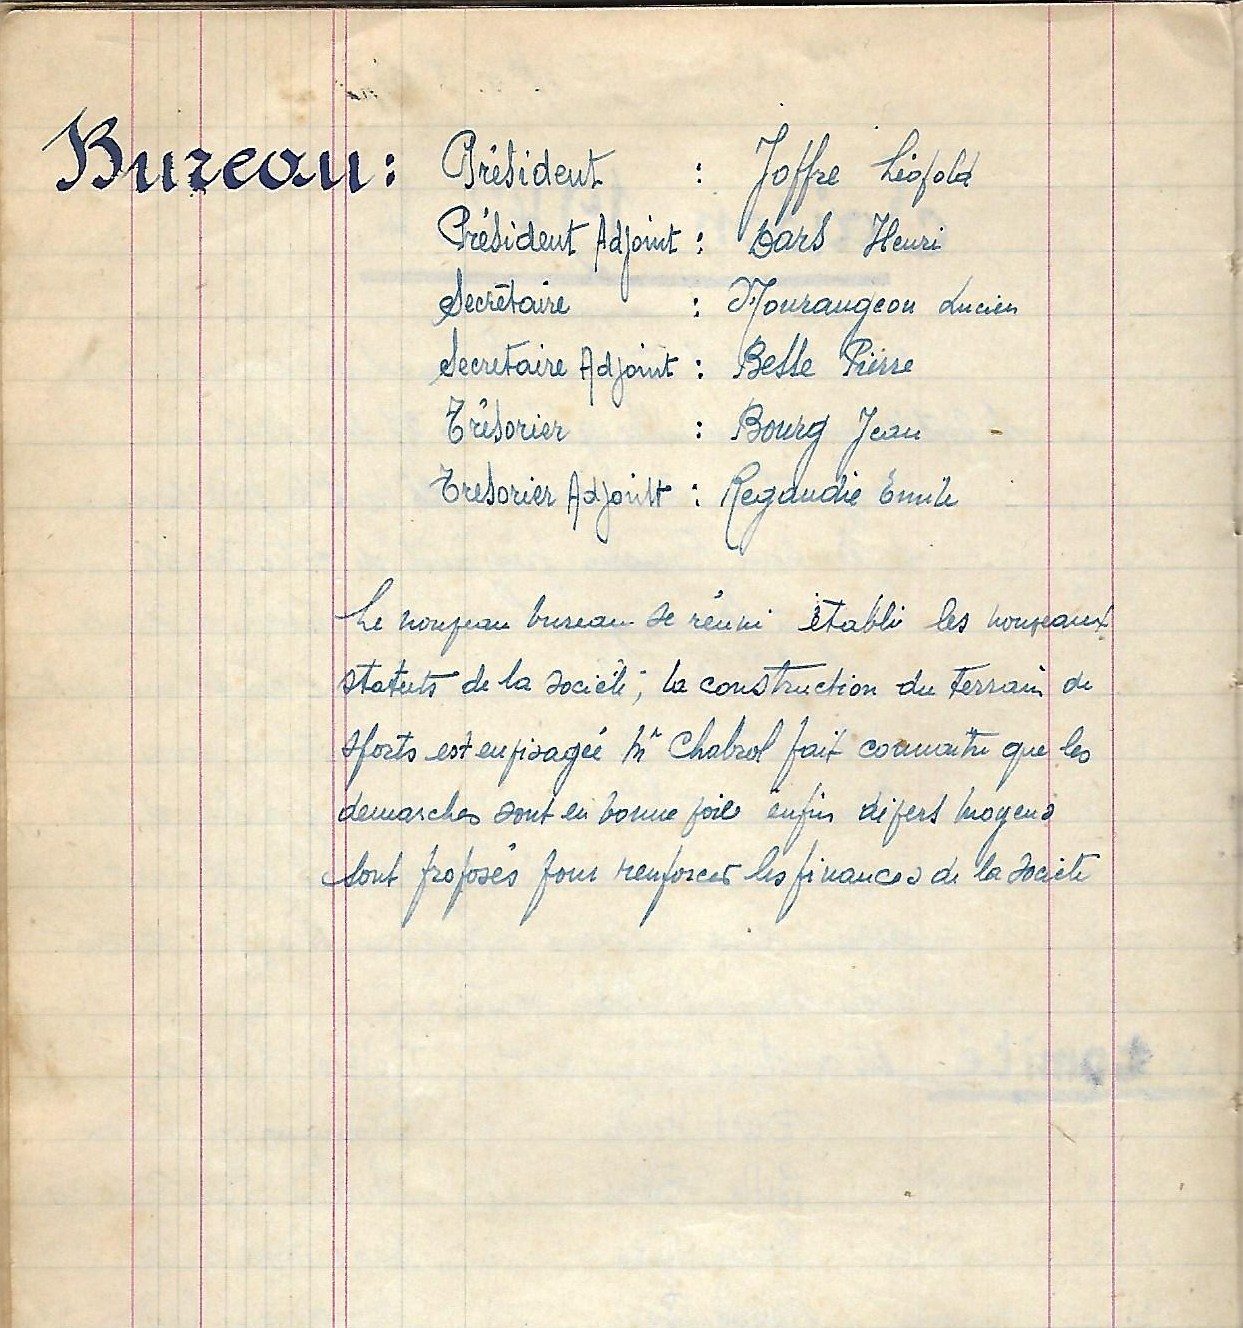 Bureau : Président : Joffre Léopold
Président Adjoint : Dars Henri
Secrétaire : Mourangeon Lucien
Secretaire Adjoint : Besse Pierre
Trésorier : Bourg Jean
Tresorier Adjoint : Regaudie Emile
Le nouveau bureau se réuni établi les nouveaux
statuts de la société ; la construction du terrain de
sports est envisagée Mr Chabrol fait connaitre que les
demarches sont en bonne voie enfin divers moyens
sont proposés pour renforcer les finances de la société